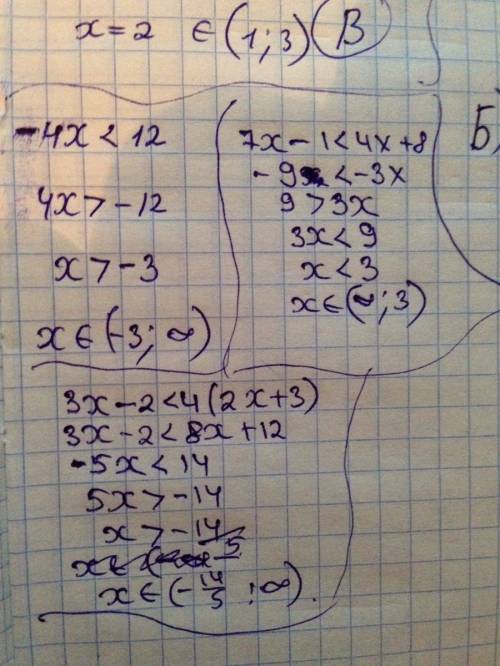 x = 2 ∈ (1; 3) B
-4x < 12
4x > -12
x > -3
x ∈ (-3; ∞)
7x - 1 < 4x + 8
- 9 < -3x
9 > 3x
3x < 9
x < 3
x ∈ (∞; 3)
Б)
3x - 2 < 4(2x + 3)
3x - 2 < 8x + 12
-5x < 14
5x > -14
x > -14/5
x ∈ (-14/5 ; ∞).